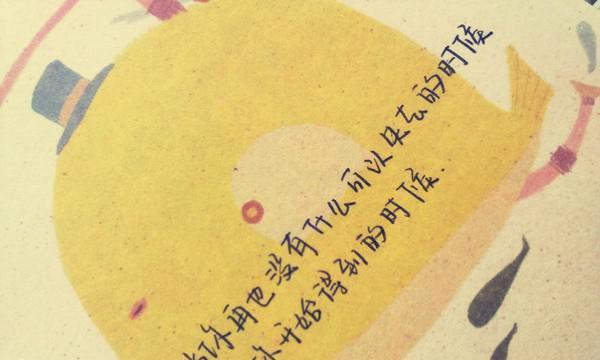 当你再也没有什么可以失去的时候
你开始得到的时候.